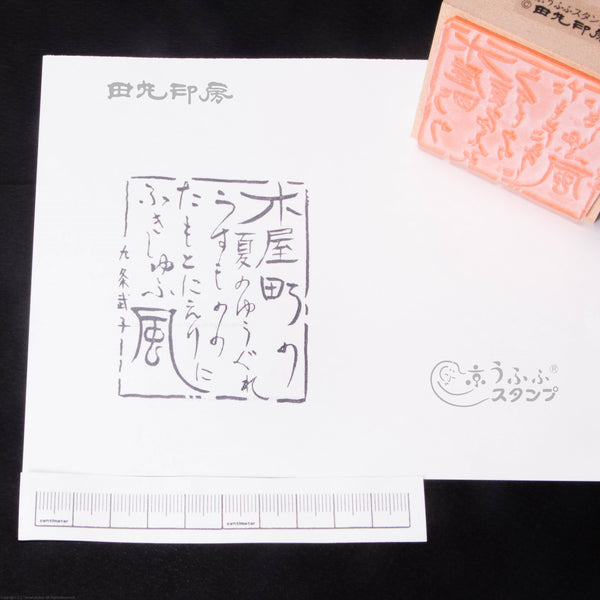 うふふスタン
© 田丸印房
田丸印房
木屋町の
夏のゆうぐれ
うすものの
たもとにえりに
ふきしゆふ風
九条武子
京うふふ®
スタンプ
centimeter
centimeter